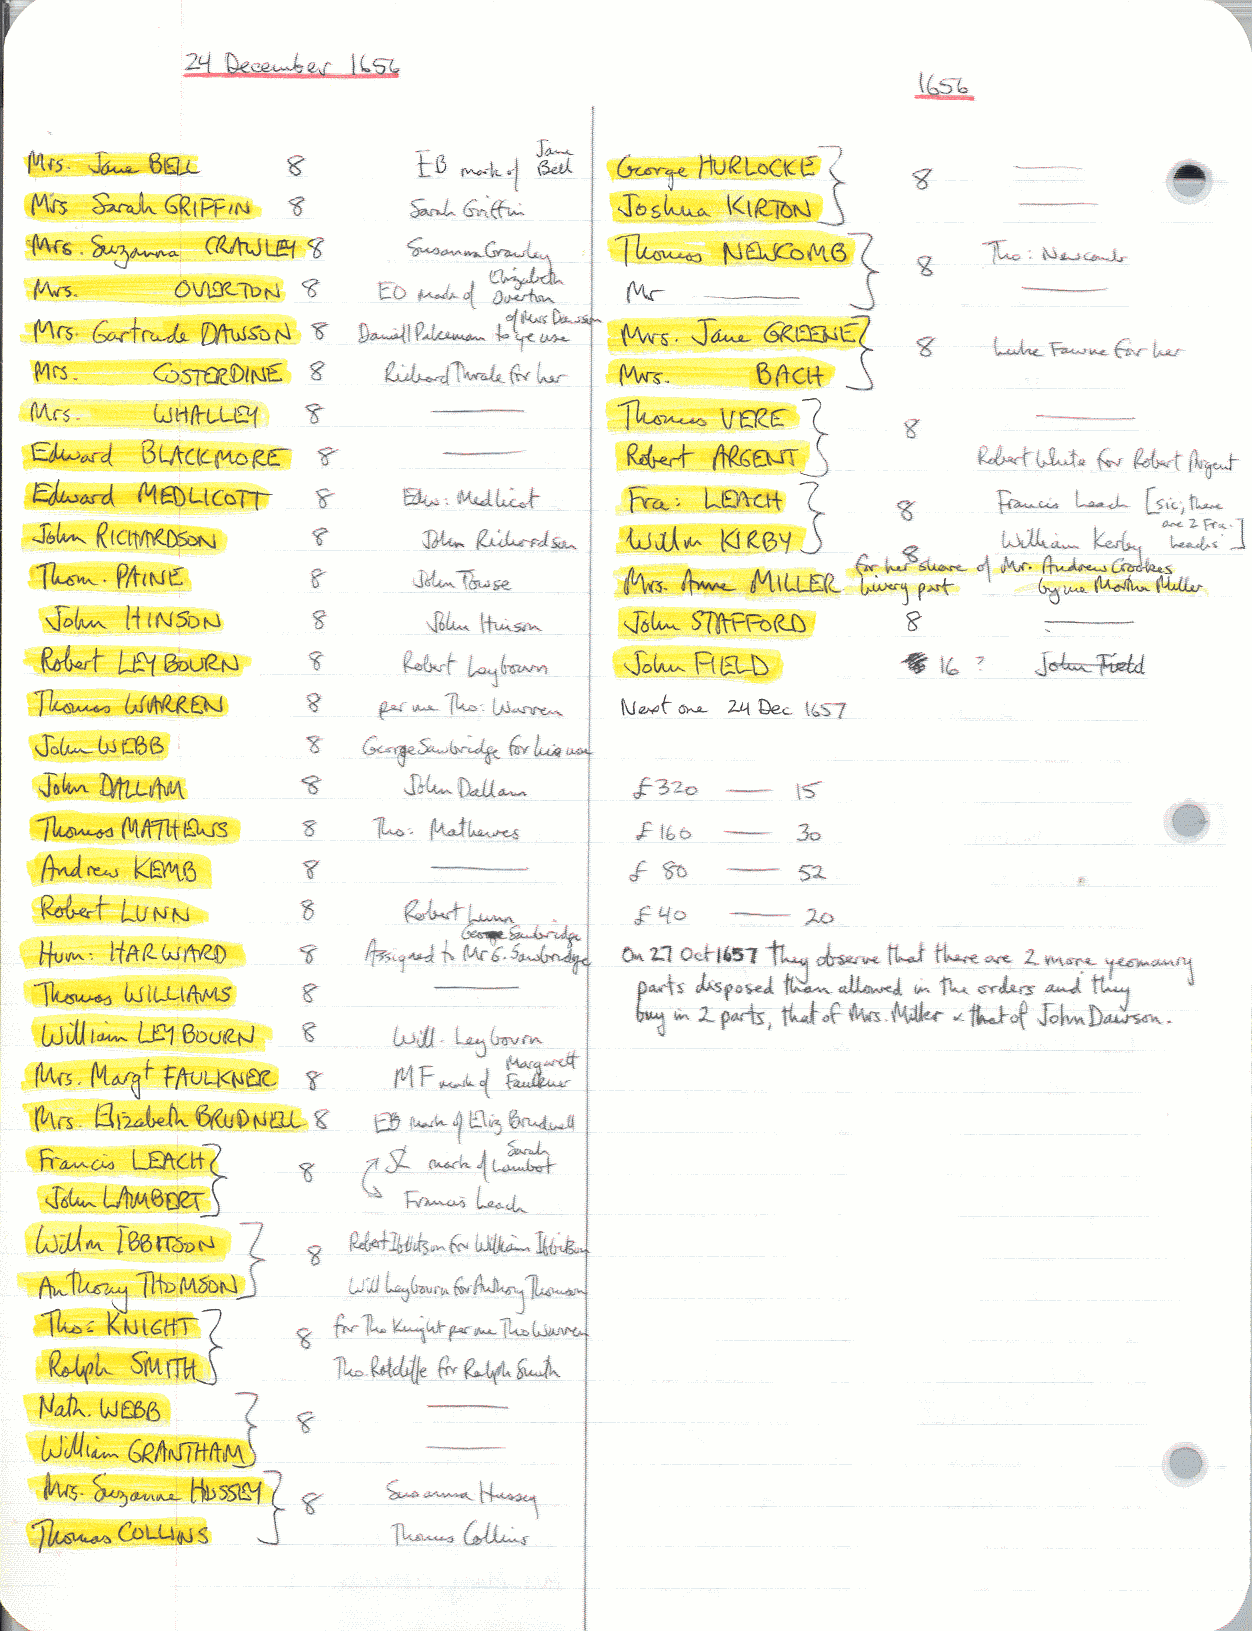 24 December 1656
Mrs. Jane BELL 8 EB mark of Jane Bell
Mrs Sarah GRIFFIN 8 Sarah Griffin
Mrs. Suzanna CRAWLEY 8 Susanna Crawley
Mrs. OVERTON 8 EO mark of Elizabeth Overton
Mrs. Gartrude DAWSON 8 Daniell Pakeman to ye use of Mrs Dawson
Mrs. COSTERDINE 8 Richard Thrale for her
Mrs. WHALLEY 8 ———
Edward BLACKMORE 8 ———
Edward MEDLICOTT 8 Edw: Medlicot
John RICHARDSON 8 John Richardson
Thom. PAINE 8 John Towse
John HINSON 8 John Hinson
Robert LEYBOURN 8 Robert Leybourn
Thomas WARREN 8 per me Tho: Warren
John WEBB 8 George Sawbridge for his use
John DALLAM 8 John Dallam
Thomas MATHEWS 8 Tho: Mathewes
Andrew KEMB 8 ———
Robert LUNN 8 Robert Lunn
George Sawbridge
Hum: HARWARD 8 Assigned to Mr G. Sawbridge
Thomas WILLIAMS 8 ———
William LEYBOURN 8 Will. Leybourn
Mrs. Margt FAULKNER 8 MF mark of Margarett Faulkner
Mrs. Elizabeth BRUDNELL 8 EB mark of Eliz Brudnell
Francis LEACH } 8 SL mark of Sarah Lambot
John LAMBERT } Francis Leach
Willm IBBITSON } 8 Robert Ibbitson for William Ibbitson
Anthony THOMSON } Will Leybourn for Anthony Thomson
Tho: KNIGHT } 8 for Tho Knight per me Tho Warren
Ralph SMITH } Tho. Ratcliffe for Ralph Smith
Nath. WEBB } 8 ———
William GRANTHAM } ———
Mrs. Suzanne HUSSEY } 8 Susanna Hussey
Thomas COLLINS } Thomas Collins
1656
George HURLOCKE } 8 ———
Joshua KIRTON } ———
Thomas NEWCOMB } 8 Tho: Newcomb
Mr ——— } ———
Mrs. Jane GREENE } 8 Luke Fawne for her
Mrs. BACH }
Thomas VERE } 8 ———
Robert ARGENT } Robert White for Robert Argent
Fra: LEACH } 8 Francis Leach [sic; there are 2 Fra. Leachs]
Willm KIRBY } William Kerby
Mrs. Anne MILLER 8 for her share of Mr. Andrew Crookes Livery part by me Martha Miller
John STAFFORD 8 ———
John FIELD 16 ? John Field
Next one 24 Dec 1657
£320 — 15
£160 — 30
£ 80 — 52
£40 — 20
On 27 Oct 1657 they observe that there are 2 more yeomanry
parts disposed than allowed in the orders and they
buy in 2 parts, that of Mrs. Miller & that of John Dawson.